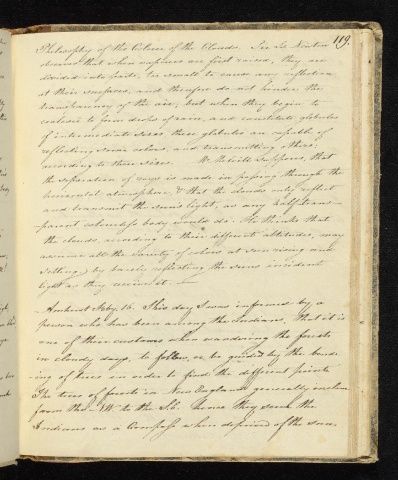 119.
Philosophy of the Colour of the Clouds. Sir Is. Newton
deems that when vapours are first raised, they are
divided into parts, too small to cause any reflection
at their surfaces, and therefore do not hinder the
transparency of the air; but when they begin to
coalesce to form drops of rain, and constitute globules
of intermediate sizes these globules are capable of
reflecting some colours, and transmitting others,
according to their sizes. Mr. Melvill supposes, that
the separation of rays is made in passing through the
horizontal atmosphere, & that the clouds only reflect
and transmit the sun's light, as any half trans-
parent colourless body would do. He thinks that
the clouds, according to their different altitudes, may
assume all the variety of colours at sun rising and
setting, by barely reflecting the suns incident
light as they receive it. —
Amherst Feby. 16. This day I was informed by a
person who has been among the Indians, that it is
one of their customs when wandering the forests
in cloudy days, to follow, or be guided by the bend-
ing of trees in order to find the different points
The trees of forests in New England generally incline
from the N.W to the S.E. hence they serve the
Indians as a Compass when deprived of the sun.